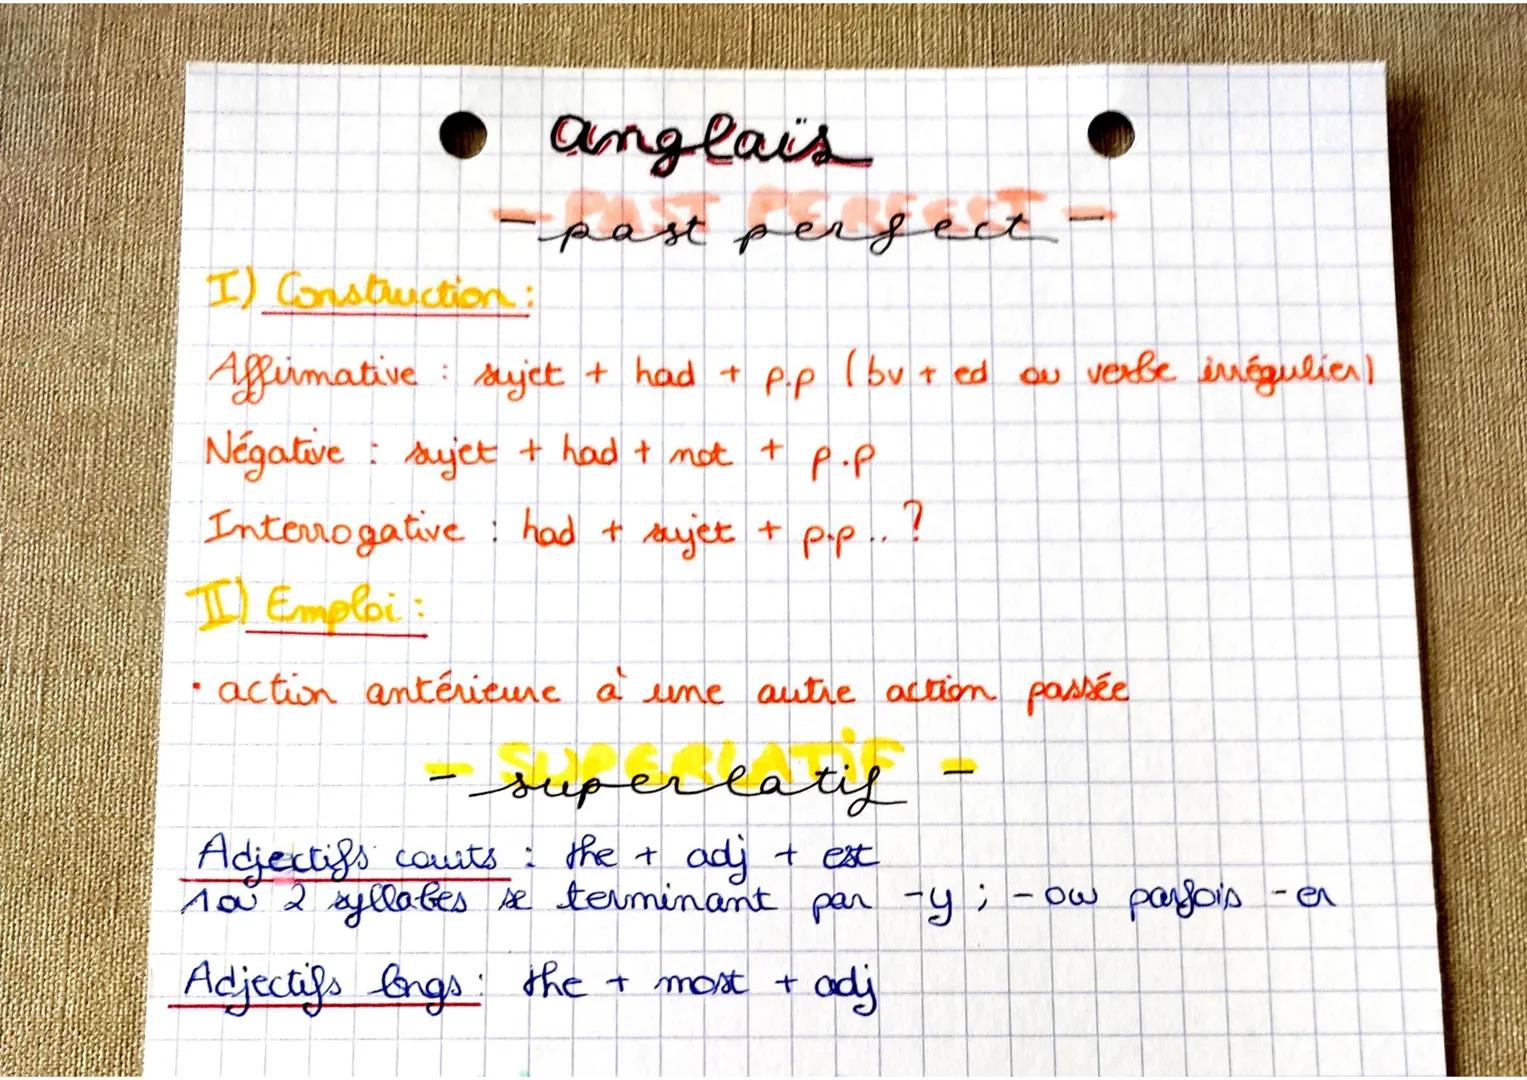 anglais
- PAST PERFECT -
- past perfect -
I) Construction :
Affirmative : sujet + had + p.p (bv + ed ou verbe irrégulier)
Négative : sujet + had + not + p.p
Interrogative : had + sujet + p.p .. ?
II) Emploi :
• action antérieure à une autre action passée
- SUPERLATiF -
- superlatif -
Adjectifs courts : the + adj + est
1 ou 2 syllabes se terminant par -y ; -ow parfois -er
Adjectifs longs : the + most + adj